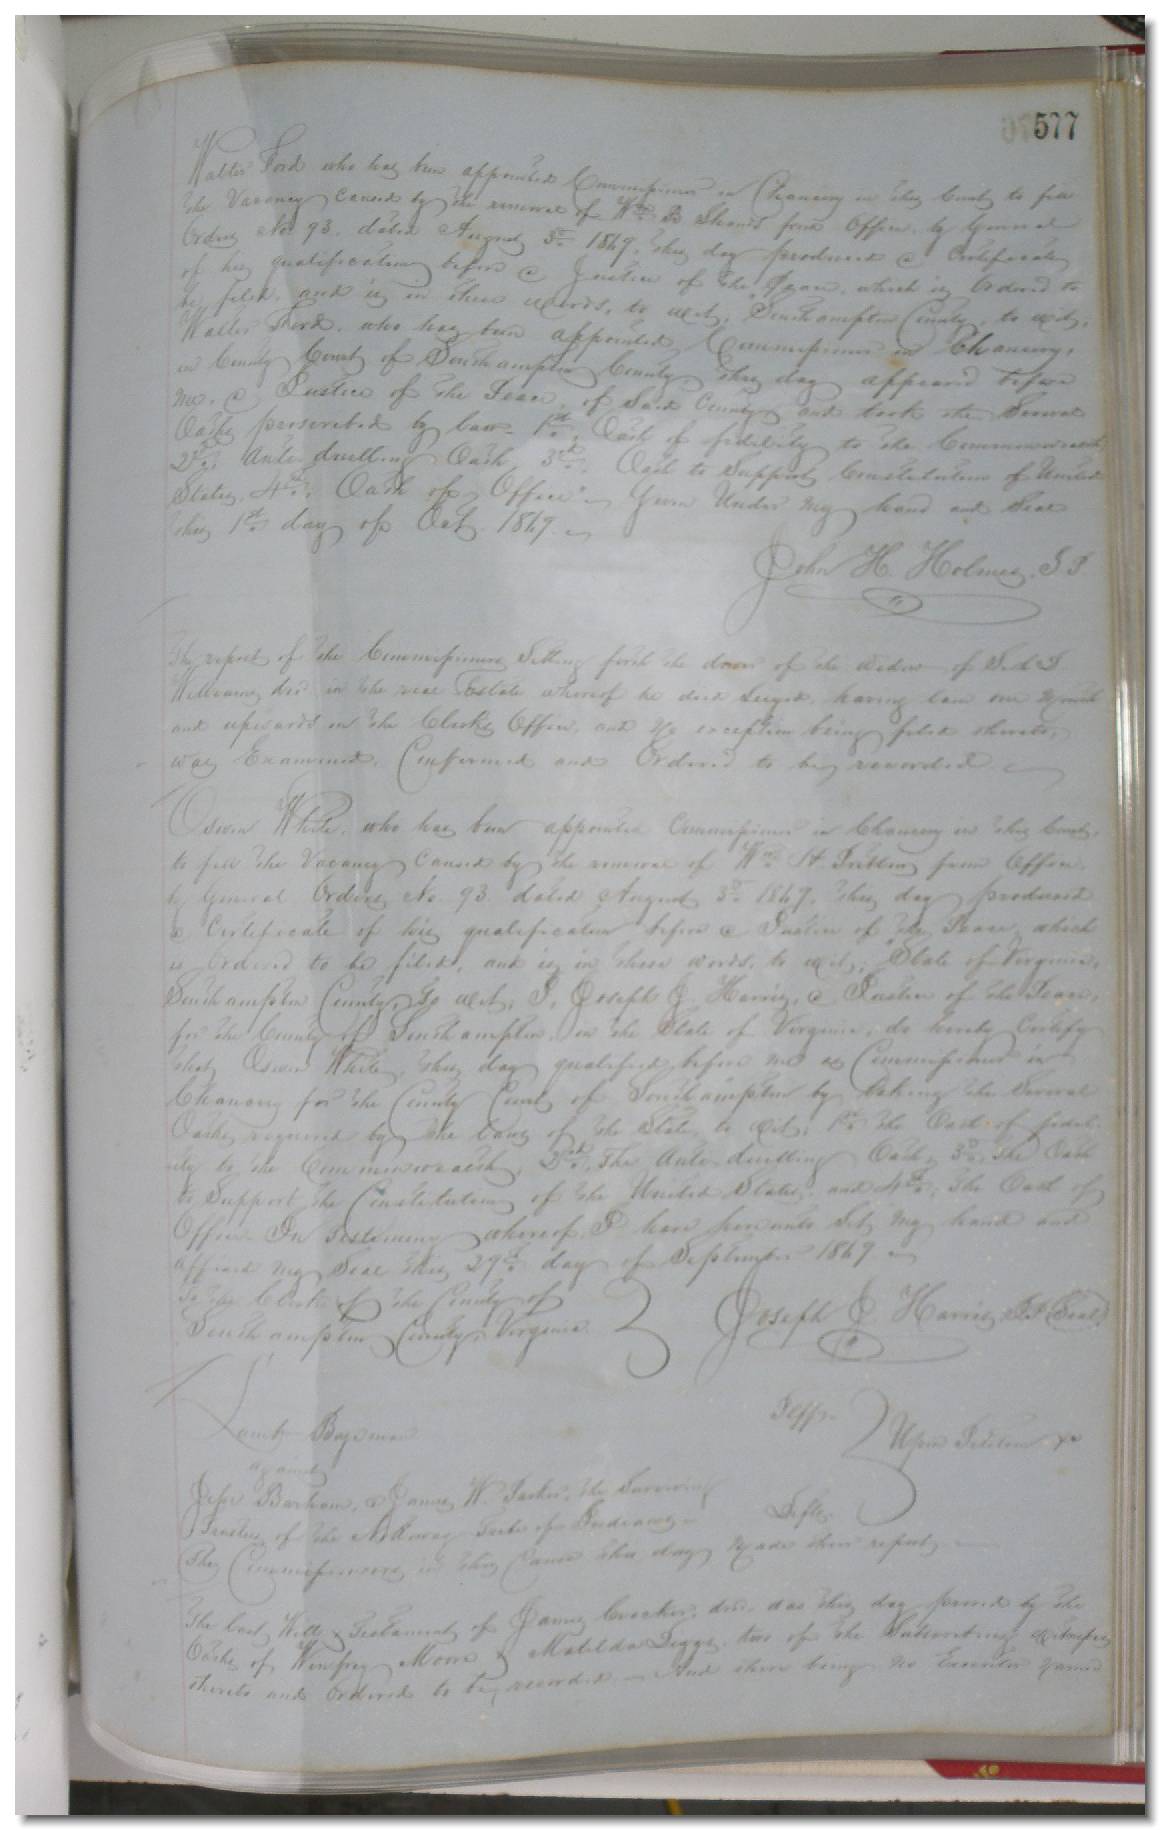 577
Walter Ford who has been appointed Commissioner in Chancery in this Court to fill
the Vacancy caused by the removal of Wm B Shands from Office by General
Orders No 93. dated August 3rd 1869, this day produced a Certificate
of his qualification before a Justice of the Peace, which is Ordered to
be filed, and is in these words, to wit; "Southampton County, to wit,
Walter Ford, who has been appointed Commissioner in Chancery,
in County Court of Southampton County this day appeared before
me, a Justice of the Peace, of Said County and took the Several
Oaths prescribed by law 1st, Oath of fidelity to the Commonwealth
2nd, Anti duelling Oath, 3rd, Oath to Support Constitution of United
States, 4th, Oath of Office" Given Under my hand and Seal
this 1st day of Oct. 1869.
John H. Holmes, J P.
The report of the Commissioners Setting forth the dower of the widow of
Williams decd. in the real Estate whereof he died Seized, having lain one Month
and upwards in the Clerks Office, and No exception being filed thereto,
was Examined, Confirmed and Ordered to be recorded.
Oswin White, who has been appointed Commissioner in Chancery in this Court,
to fill the Vacancy caused by the removal of Wm from Office.
by General Orders No. 93. dated August 3rd 1869, this day produced
a Certificate of his qualification before a Justice of the Peace, which
is Ordered to be filed, and is in these words, to wit; "State of Virginia,
Southampton County, to wit; I, Joseph J. Harris, a Justice of the Peace,
for the County of Southampton, in the State of Virginia, do hereby Certify
that Oswin White, this day qualified before me as Commissioner in
Chancery for the County Court of Southampton by taking the Several
Oaths required by the laws of the State, to wit; 1st The Oath of fidel-
ity to the Commonwealth, 2nd, The Anti duelling Oath, 3rd, The Oath
to Support the Constitution of the United States, and 4th, The Oath of
Office. In Testimony whereof, I have hereunto Set my hand and
affixed my Seal this 29th day of September 1869.
To the Clerk of the County of
Southampton County, Virginia
Joseph J. Harris JP (Seal)
Bozeman Plff.
Upon Petition &c
against
Jesse Barham, & James W. Parker, the Surviving
Trustees of the Nottoway Tribe of Indians Defts.
The Commissioners in this Cause this day Made their report,
The last Will & Testament of James Crocker, decd. was this day proved by the
Oaths of Winfrey Moore & Matilda two of the Subscribing Witnesses
thereto and Ordered to be recorded And there being no Executor Named